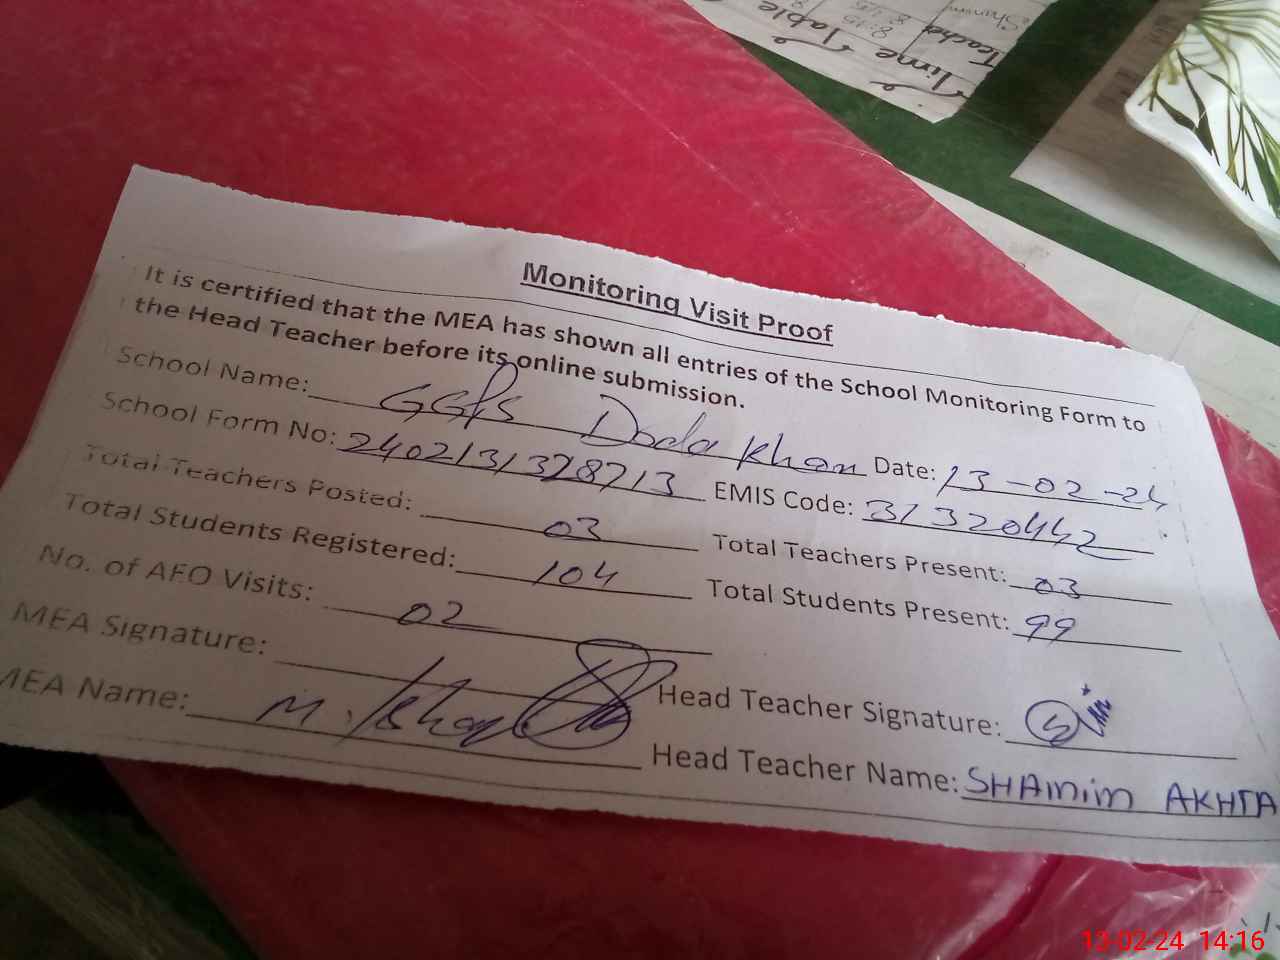 Time Table
Teacher 8:15
Shamim 8:45
Monitoring Visit Proof
It is certified that the MEA has shown all entries of the School Monitoring Form to
the Head Teacher before its online submission.
School Name: GGPS Doda Khan Date: 13-02-24
School Form No: 2402131328713 EMIS Code: 31320442
Total Teachers Posted: 03 Total Teachers Present: 03
Total Students Registered: 104 Total Students Present: 99
No. of AEO Visits: 02
MEA Signature: Head Teacher Signature:
MEA Name: M. Head Teacher Name: SHAMIM AKHTA
13-02-24 14:16